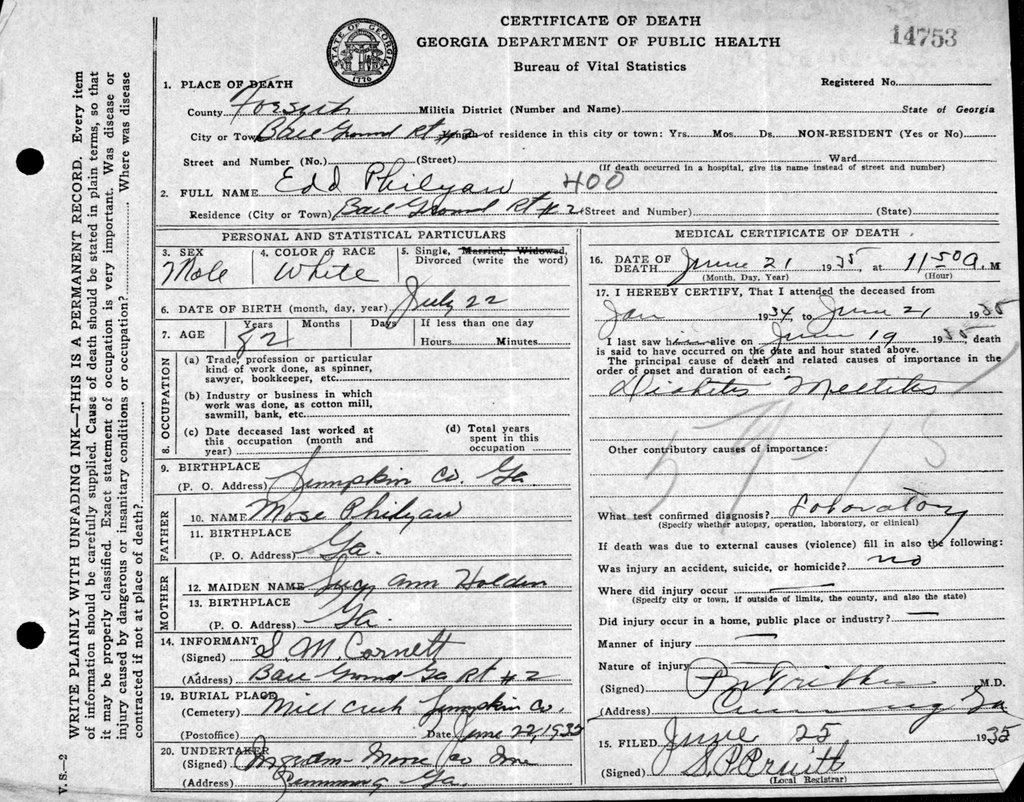 CERTIFICATE OF DEATH
GEORGIA DEPARTMENT OF PUBLIC HEALTH
Bureau of Vital Statistics
14753
STATE OF GEORGIA 1776
Registered No.
1. PLACE OF DEATH
County Forsyth Militia District (Number and Name) State of Georgia
City or Town Ball Ground Rt #2 of residence in this city or town: Yrs. Mos. Ds. NON-RESIDENT (Yes or No)
Street and Number (No.) (Street) Ward
(If death occurred in a hospital, give its name instead of street and number)
2. FULL NAME Edd Philyaw 400
Residence (City or Town) Ball Ground Rt #2 (Street and Number) (State)
PERSONAL AND STATISTICAL PARTICULARS
3. SEX Male
4. COLOR OR RACE White
5. Single, Married, Widowed, Divorced (write the word)
6. DATE OF BIRTH (month, day, year) July 22
7. AGE Years 82 Months Days If less than one day
Hours Minutes
8. OCCUPATION
(a) Trade, profession or particular
kind of work done, as spinner,
sawyer, bookkeeper, etc.
(b) Industry or business in which
work was done, as cotton mill,
sawmill, bank, etc.
(c) Date deceased last worked at
this occupation (month and
year)
(d) Total years
spent in this
occupation
9. BIRTHPLACE
(P. O. Address) Lumpkin Co. Ga
FATHER
10. NAME Mose Philyaw
11. BIRTHPLACE
(P. O. Address) Ga.
MOTHER
12. MAIDEN NAME Lucy Ann Holden
13. BIRTHPLACE
(P. O. Address) Ga.
14. INFORMANT
(Signed) S. M Cornett
(Address) Ball Ground Ga Rt #2
19. BURIAL PLACE
(Cemetery) Mill Creek Lumpkin Co.
(Postoffice) Date June 22, 1935
20. UNDERTAKER
(Signed) Ingram Co Inc
(Address) Cumming Ga.
MEDICAL CERTIFICATE OF DEATH
16. DATE OF
DEATH June 21 1935, at 11:50 a. M
(Month, Day, Year) (Hour)
17. I HEREBY CERTIFY, That I attended the deceased from
Jan 1934 to June 21 1935
I last saw h alive on June 19 1935 death
is said to have occurred on the date and hour stated above.
The principal cause of death and related causes of importance in the
order of onset and duration of each:
Diabetes Meetites
59-13
Other contributory causes of importance:
What test confirmed diagnosis? Laboratory
(Specify whether autopsy, operation, laboratory, or clinical)
If death was due to external causes (violence) fill in also the following:
Was injury an accident, suicide, or homicide? no
Where did injury occur
(Specify city or town, if outside of limits, the county, and also the state)
Did injury occur in a home, public place or industry?
Manner of injury
Nature of injury
(Signed) M.D.
(Address) Cumming Ga
15. FILED June 25 1935
(Signed) S. P. Pruitt
(Local Registrar)
WRITE PLAINLY WITH UNFADING INK—THIS IS A PERMANENT RECORD. Every item
of information should be carefully supplied. Cause of death should be stated in plain terms, so that
it may be properly classified. Exact statement of occupation is very important. Was disease or
injury caused by dangerous or insanitary conditions or occupation? Where was disease
contracted if not at place of death?
V. S.—2